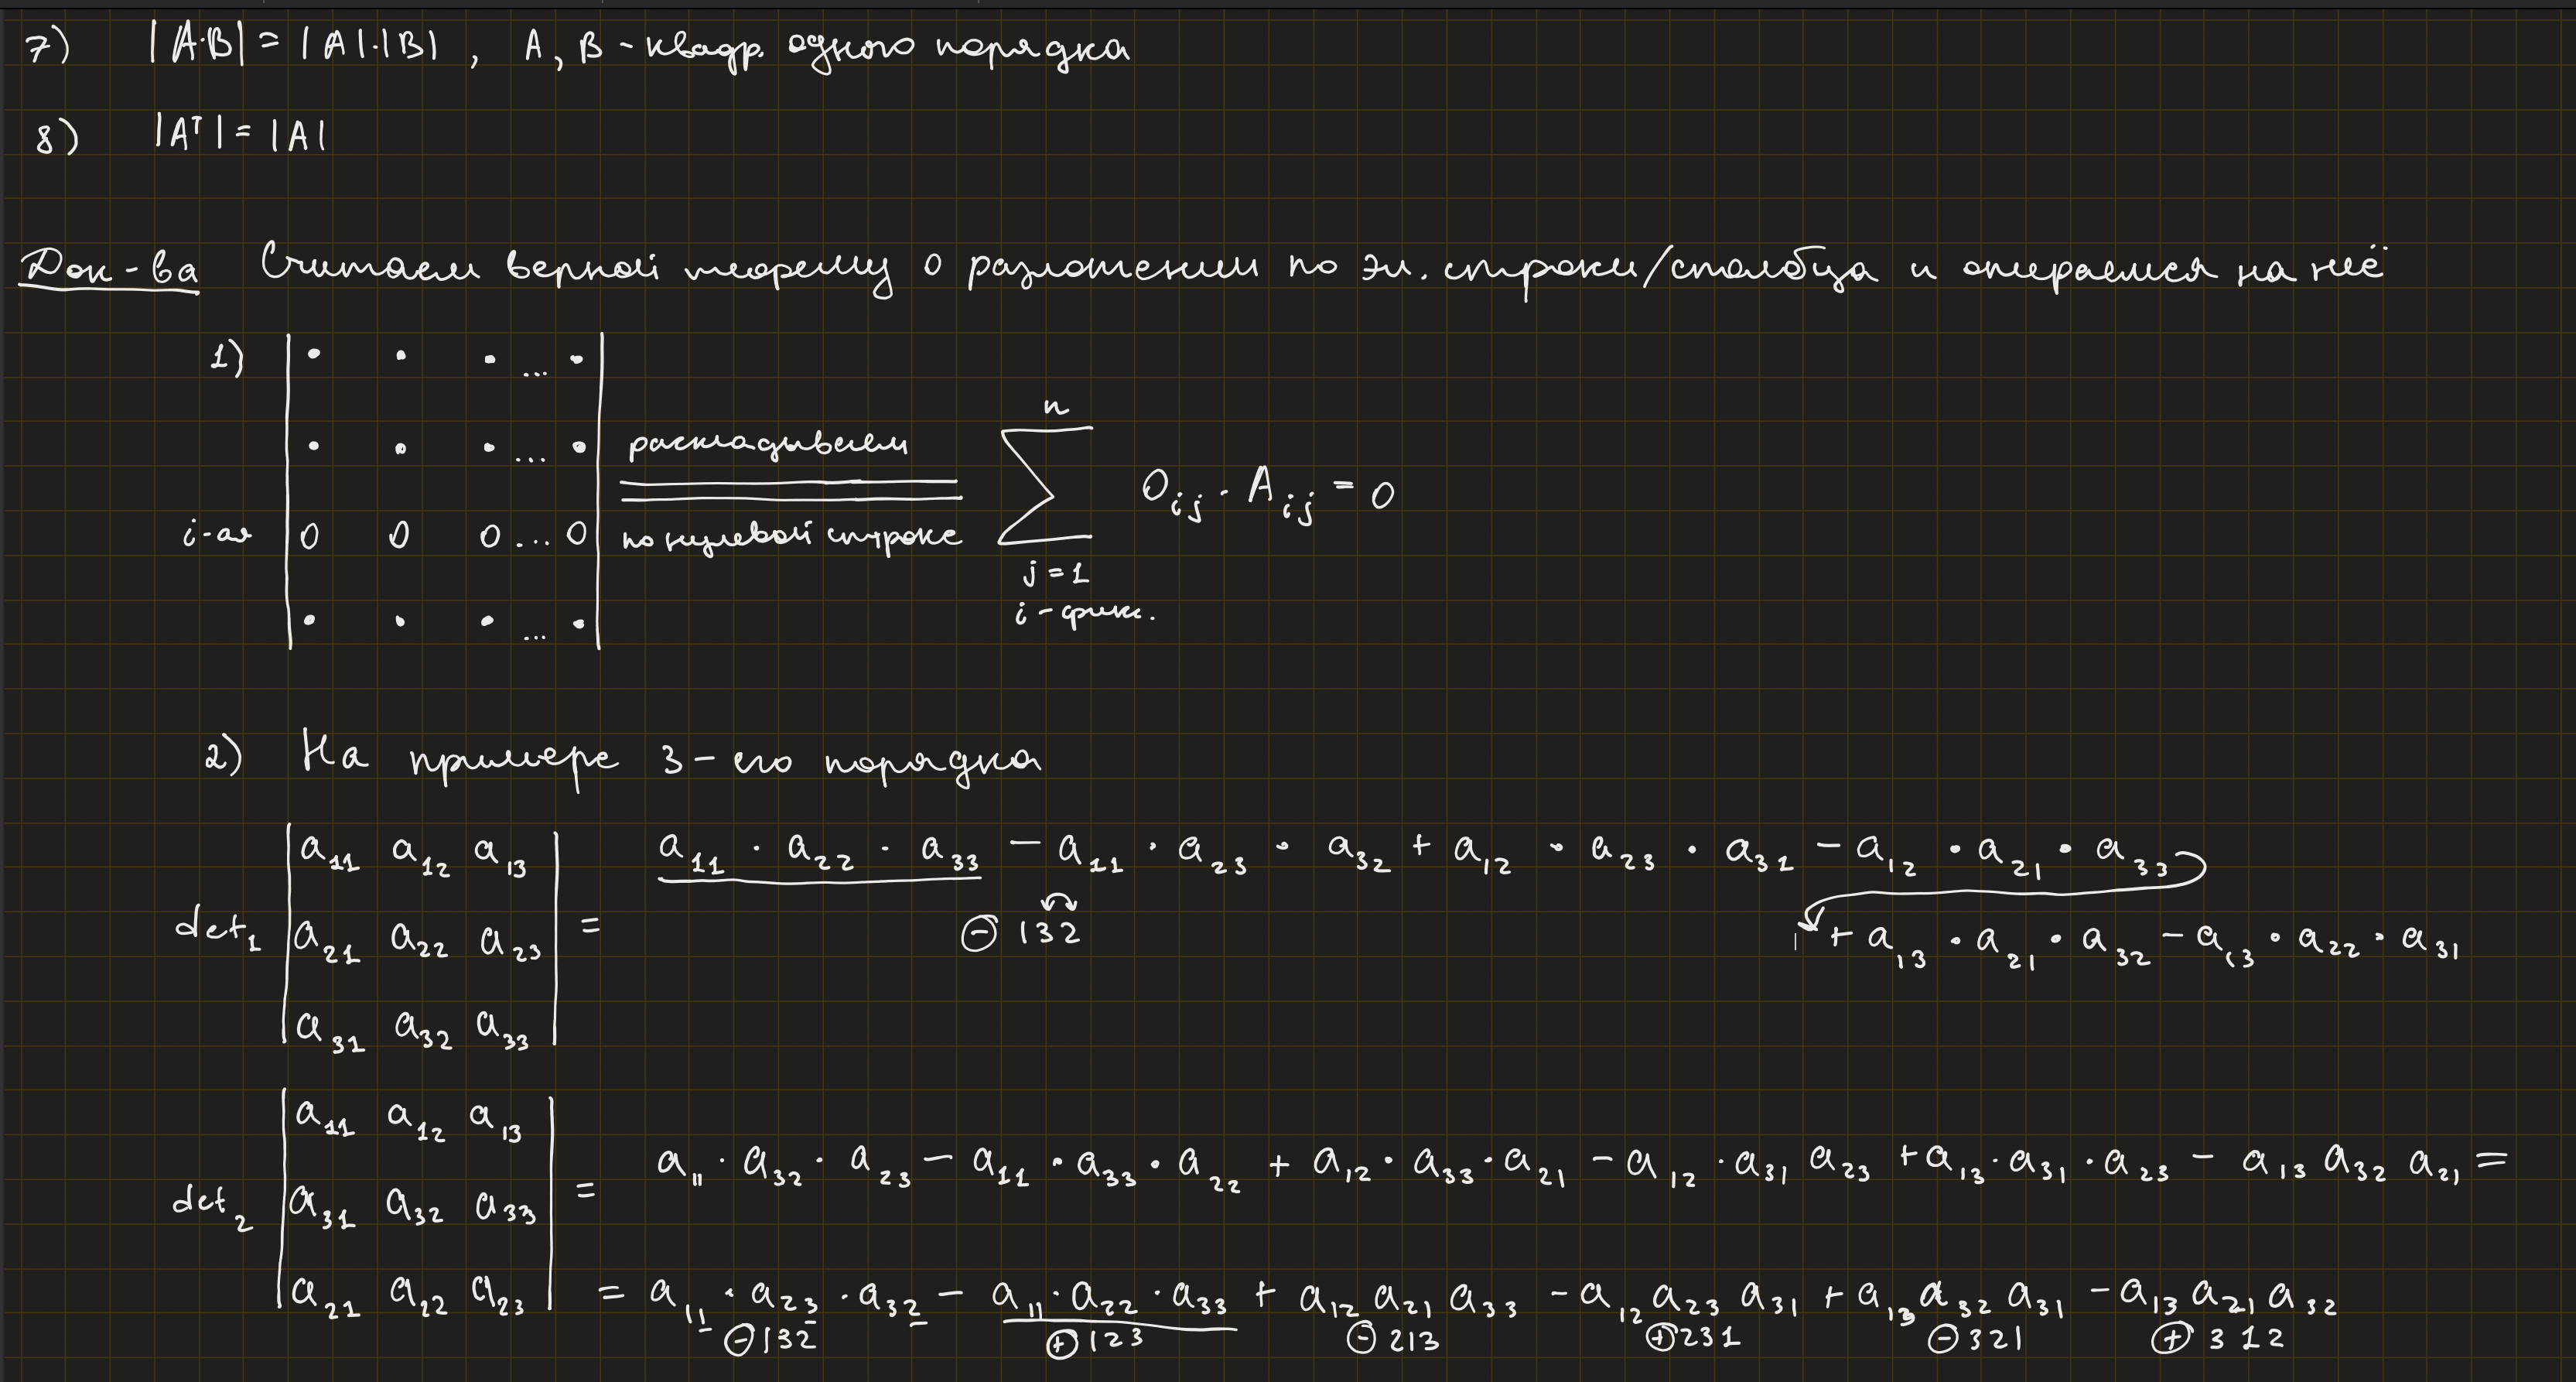 7) |A·B| = |A|·|B| , A, B - квадр. одного порядка
8) |Aᵀ| = |A|
Док-ва Считаем верной теорему о разложении по эл. строки/столбца и опираемся на неё
1)
• • • ... •
• • • ... •
i-ая 0 0 0 ... 0
• • • ... •
раскладываем
по нулевой строке
n
∑ 0ij · Aij = 0
j = 1
i - фикс.
2) На примере 3-его порядка
a11 a12 a13
det1 a21 a22 a23 =
a31 a32 a33
a11 · a22 · a33 − a11 · a23 · a32 + a12 · a23 · a31 − a12 · a21 · a33
⊖ 132
+ a13 · a21 · a32 − a13 · a22 · a31
a11 a12 a13
det2 a31 a32 a33 =
a21 a22 a23
a11 · a32 · a23 − a11 · a33 · a22 + a12 · a33 · a21 − a12 · a31 a23 + a13 · a31 · a23 − a13 a32 a21 =
= a11 · a23 · a32 − a11 · a22 · a33 + a12 a21 a33 − a12 a23 a31 + a13 a32 a31 − a13 a21 a32
⊖132 ⊕123 ⊖213 ⊕231 ⊖321 ⊕312